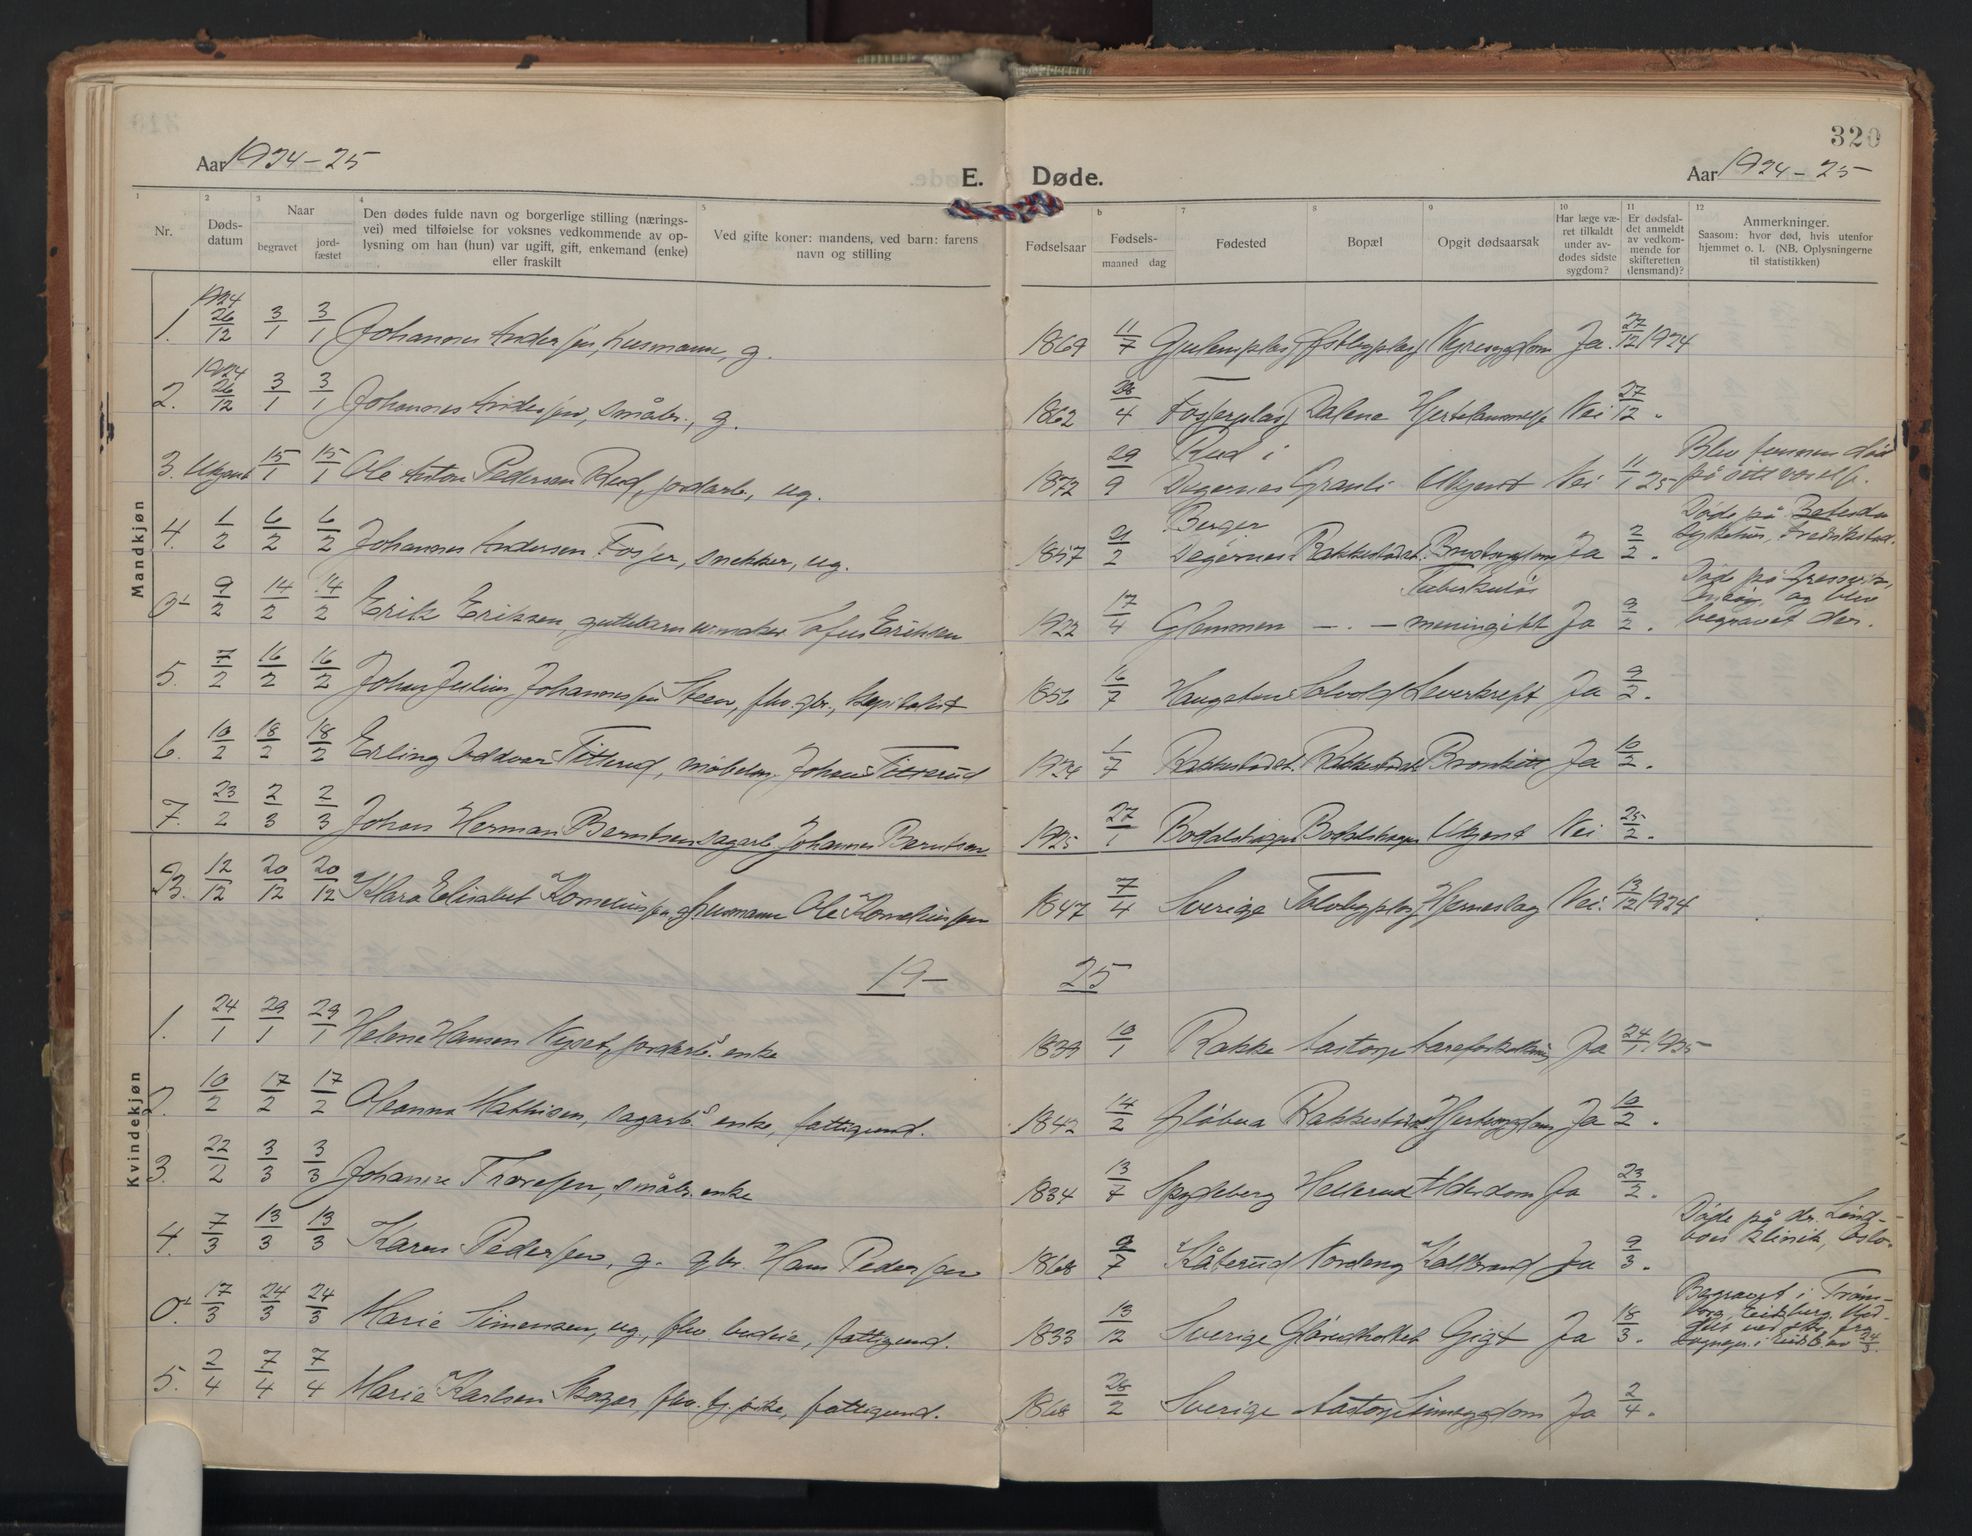 320
Aar 1924-25
E. Døde.
Aar 1924-25
1 2 3 4 5 6 7 8 9 10 11 12
Nr.
Døds-
datum
Naar
begravet
jord-
fæstet
Den dødes fulde navn og borgerlige stilling (nærings-
vei) med tilføielse for voksnes vedkommende av op-
lysning om han (hun) var ugift, gift, enkemand (enke)
eller fraskilt
Ved gifte koner: mandens, ved barn: farens
navn og stilling
Fødselsaar
Fødsels-
maaned dag
Fødested
Bopæl
Opgit dødsaarsak
Har læge væ-
ret tilkaldt
under av-
dødes sidste
sygdom?
Er dødsfal-
det anmeldt
av vedkom-
mende for
skifteretten
(lensmand)?
Anmerkninger.
Saasom: hvor død, hvis utenfor
hjemmet o. l. (NB. Oplysningerne
til statistikken)
Mandkjøn
1. 1924 26/12 3/1 3/1 Johannes Andersen, husmann, g. 1869 11/7 Østbyplass Nyresygdom Ja 27/12 1924
2. 1924 26/12 3/1 3/1 Johannes Andersen, småbr., g. 1862 28/4 Fosserplass Dalene Hjertelammelse Nei 27/12 "
3. Ukjent 15/1 15/1 Ole Anton Pedersen Rud, jordarb., ug. 1872 29/9 Rud i Degernes Granli Ukjent Nei 11/1 25 Blev funnen død på sitt værelse.
4. 1/2 6/2 6/2 Johannes Andersen Fosser, snekker, ug. 1857 21/2 Berger Degernes Rakkestadst. Brystsygdom Ja 2/2 " Døde på Betesda sykehus, Fredrikstad.
9/2 14/2 14/2 Erik Eriksen, guttebarn urmaker Sofus Eriksen 1922 17/4 Glemmen - " - Tuberkuløs meningitt Ja 9/2 " Død på Gressvik, Onsøy, og blev begravet der.
5. 7/2 16/2 16/2 Johan Julius Johannessen Steen, fhv. gbr., kapitalist 1856 16/7 Haugsten Solvold Leverkreft Ja 9/2 "
6. 10/2 18/2 18/2 Erling Oddvar Titterud, møbelsn. Johan Titterud 1924 1/7 Rakkestadst. Rakkestadst. Bronkitt Ja 10/2 "
7. 23/2 2/3 2/3 Johan Herman Berntsen sagarb. Johannes Berntsen 1925 27/1 Bodalshagen Bodalshagen Ukjent Nei 25/2 "
23. 12/12 20/12 20/12 Klara Elisabet Korneliussen, g. husmann Ole Korneliussen 1847 7/4 Sverige Hjerneslag Nei 13/12 1924
19- 25
Kvindekjøn
1. 24/1 29/1 29/1 Helene Hansen Nyset, jordarb.s enke 1839 10/1 Rakke Aastorp Aareforkalkning Ja 24/1 1925
2. 10/2 17/2 17/2 Oleanna Mathisen, sagarb.s enke, fattigund. 1842 14/2 Rakkestadst. Hjertesygdom Ja 10/2 "
3. 22/2 3/3 3/3 Johanne Thoresen, småbr. enke 1834 13/7 Spydeberg Hellerud Alderdom Ja 23/2 "
4. 7/3 13/3 13/3 Karen Pedersen, g. gbr. Hans Pedersen 1868 9/7 Kåterud Nordeng Koldbrand Ja 9/3 " Døde på dr. klinik, Oslo.
17/3 24/3 24/3 Marie Simensen, ug., fhv. budeie, fattigund. 1833 13/12 Sverige Gigt Ja 18/3 " Begravet i Trømborg, Eidsberg.
5. 2/4 7/4 7/4 Marie Karlsen Skoger, fhv. tj. pike, fattigund. 1868 28/2 Sverige Aastorp Sinnssygdom Ja 2/4 "